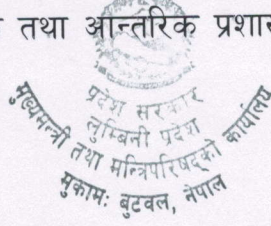 तथा आन्तरिक
प्रदेश सरकार
लुम्बिनी प्रदेश
मुख्यमन्त्री तथा मन्त्रिपरिषद्को कार्यालय
मुकामः बुटवल, नेपाल